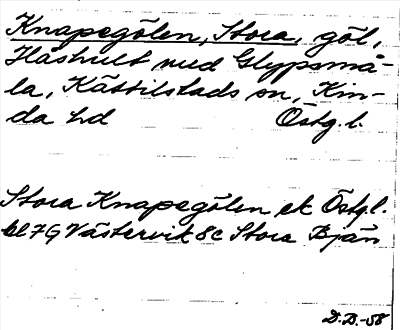 Knapegölen, Stora, göl,
Håshult med Glypsmå-
la, Kättilstads sn, Kin-
da hd Östg.l.
Stora Knapegölen ek Östg.l.
bl 7G Västervik 8c Stora Bjän
D.B.-58